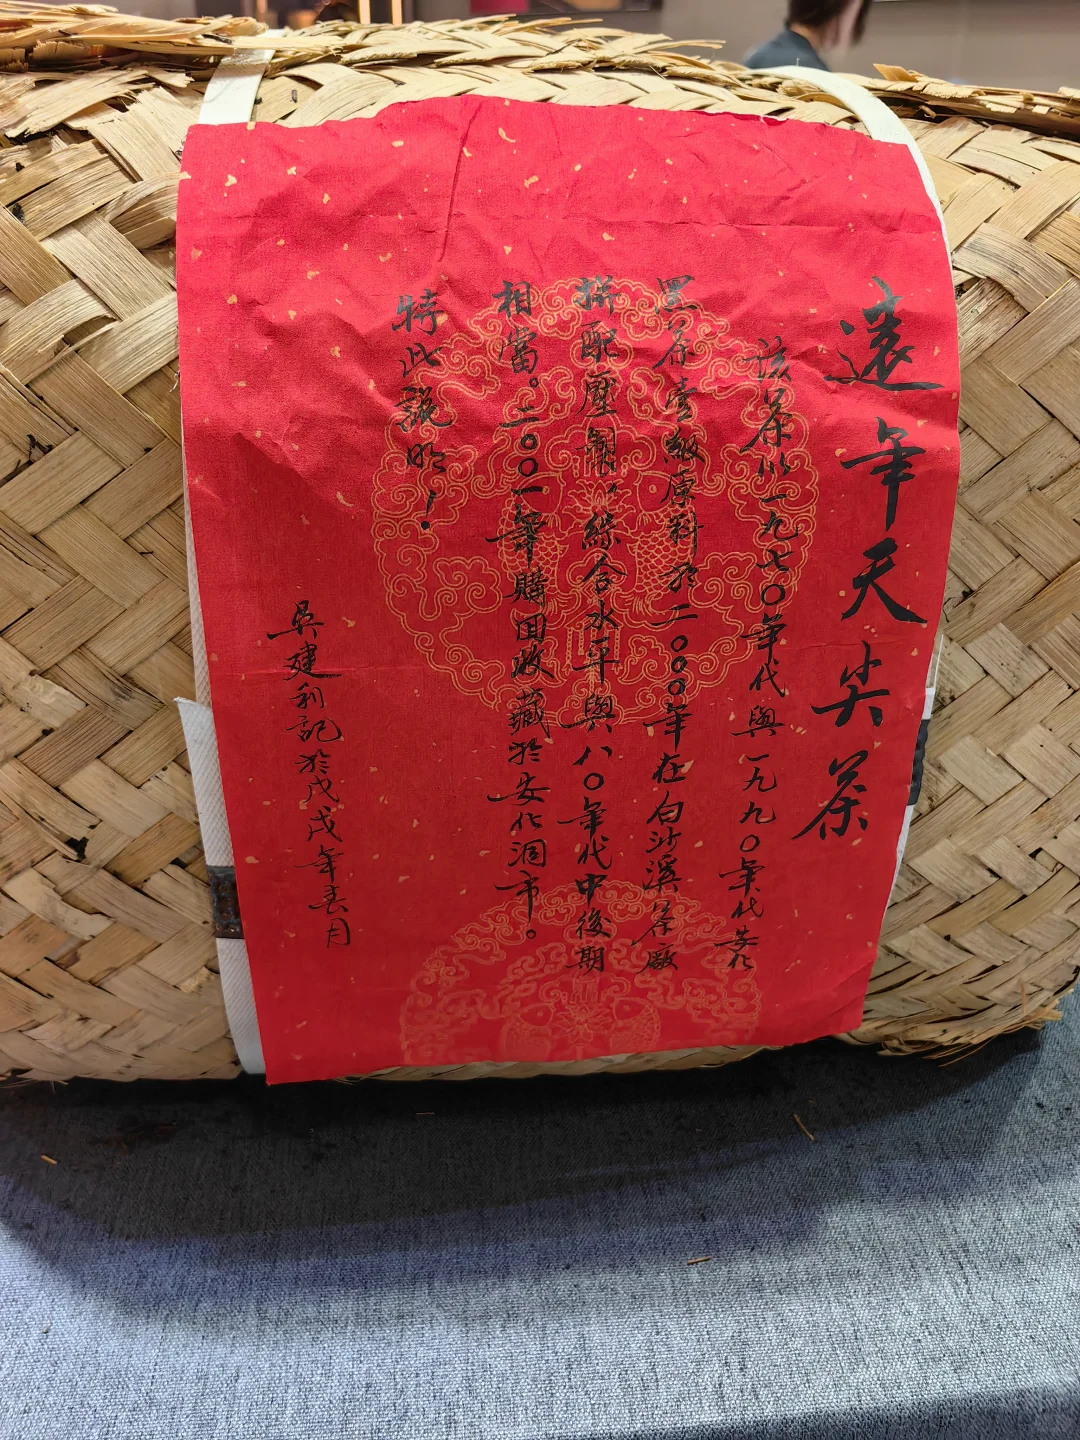 遠年天尖茶
該茶以一九七〇年代與一九九〇年代安化
黑茶壹級原料於二〇〇〇年在白沙溪茶廠
拼配壓製，綜合水平與八〇年代中後期
相當。二〇〇一年購回收藏於安化洞市。
特此說明！
吳建利記於戊戌年春月